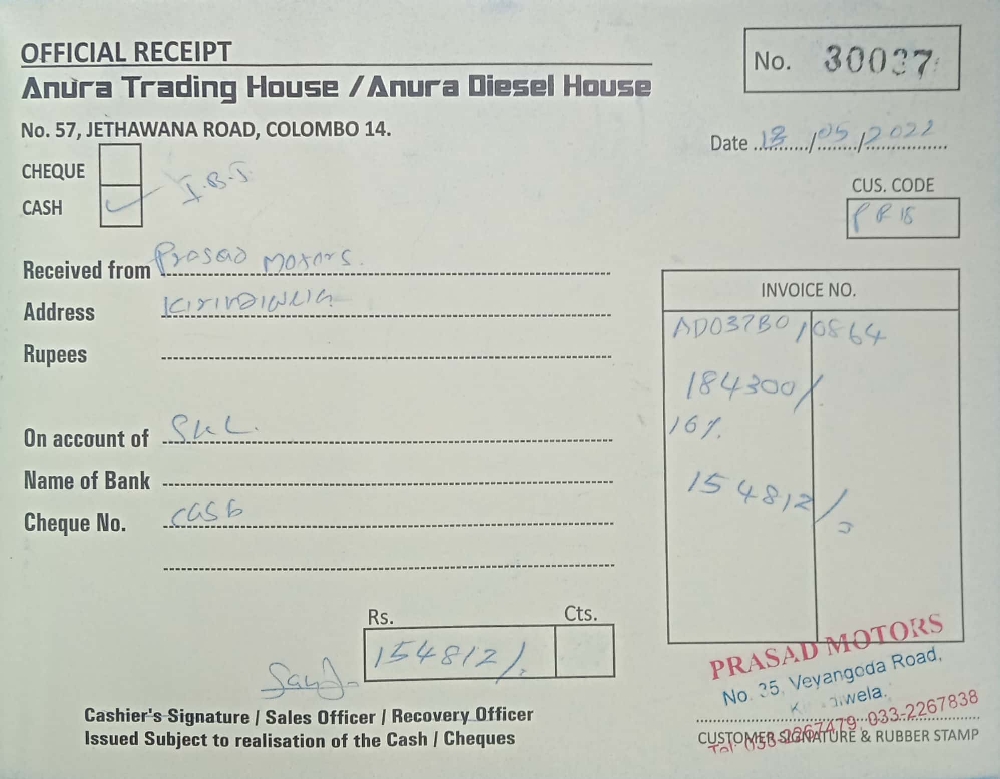 OFFICIAL RECEIPT
Anura Trading House / Anura Diesel House
No. 57, JETHAWANA ROAD, COLOMBO 14.
No. 30037
Date ../05/2022
CHEQUE
CASH
CUS. CODE
PR 18
Received from Prasad Motors.
Address
Rupees
On account of
Name of Bank
Cheque No. cash
INVOICE NO.
AD037B0/0864
184300/.
16%.
154812/.
Rs. Cts.
154812/.
Cashier's Signature / Sales Officer / Recovery Officer
Issued Subject to realisation of the Cash / Cheques
PRASAD MOTORS
No. 35, Veyangoda Road,
Tel: 033-2267479, 033-2267838
CUSTOMER SIGNATURE & RUBBER STAMP